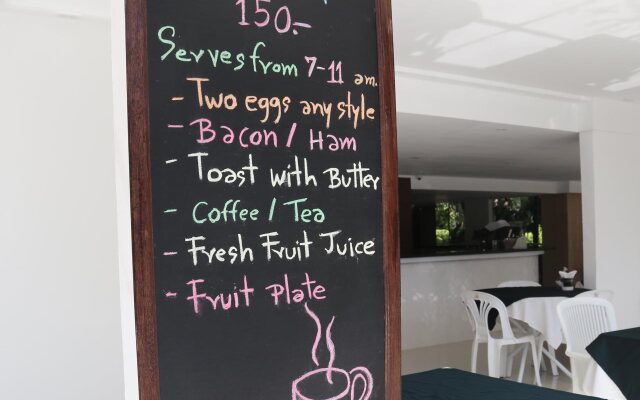 150.-
Serves from 7-11 am.
- Two eggs any style
- Bacon / Ham
- Toast with Butter
- Coffee / Tea
- Fresh Fruit Juice
- Fruit Plate